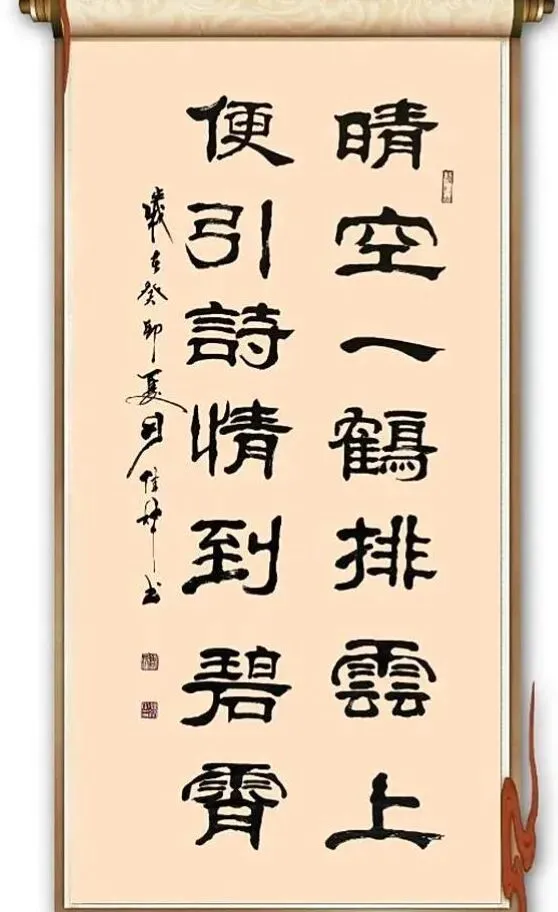 晴空一鶴排雲上
便引詩情到碧霄
歲在癸卯夏月佳婢书